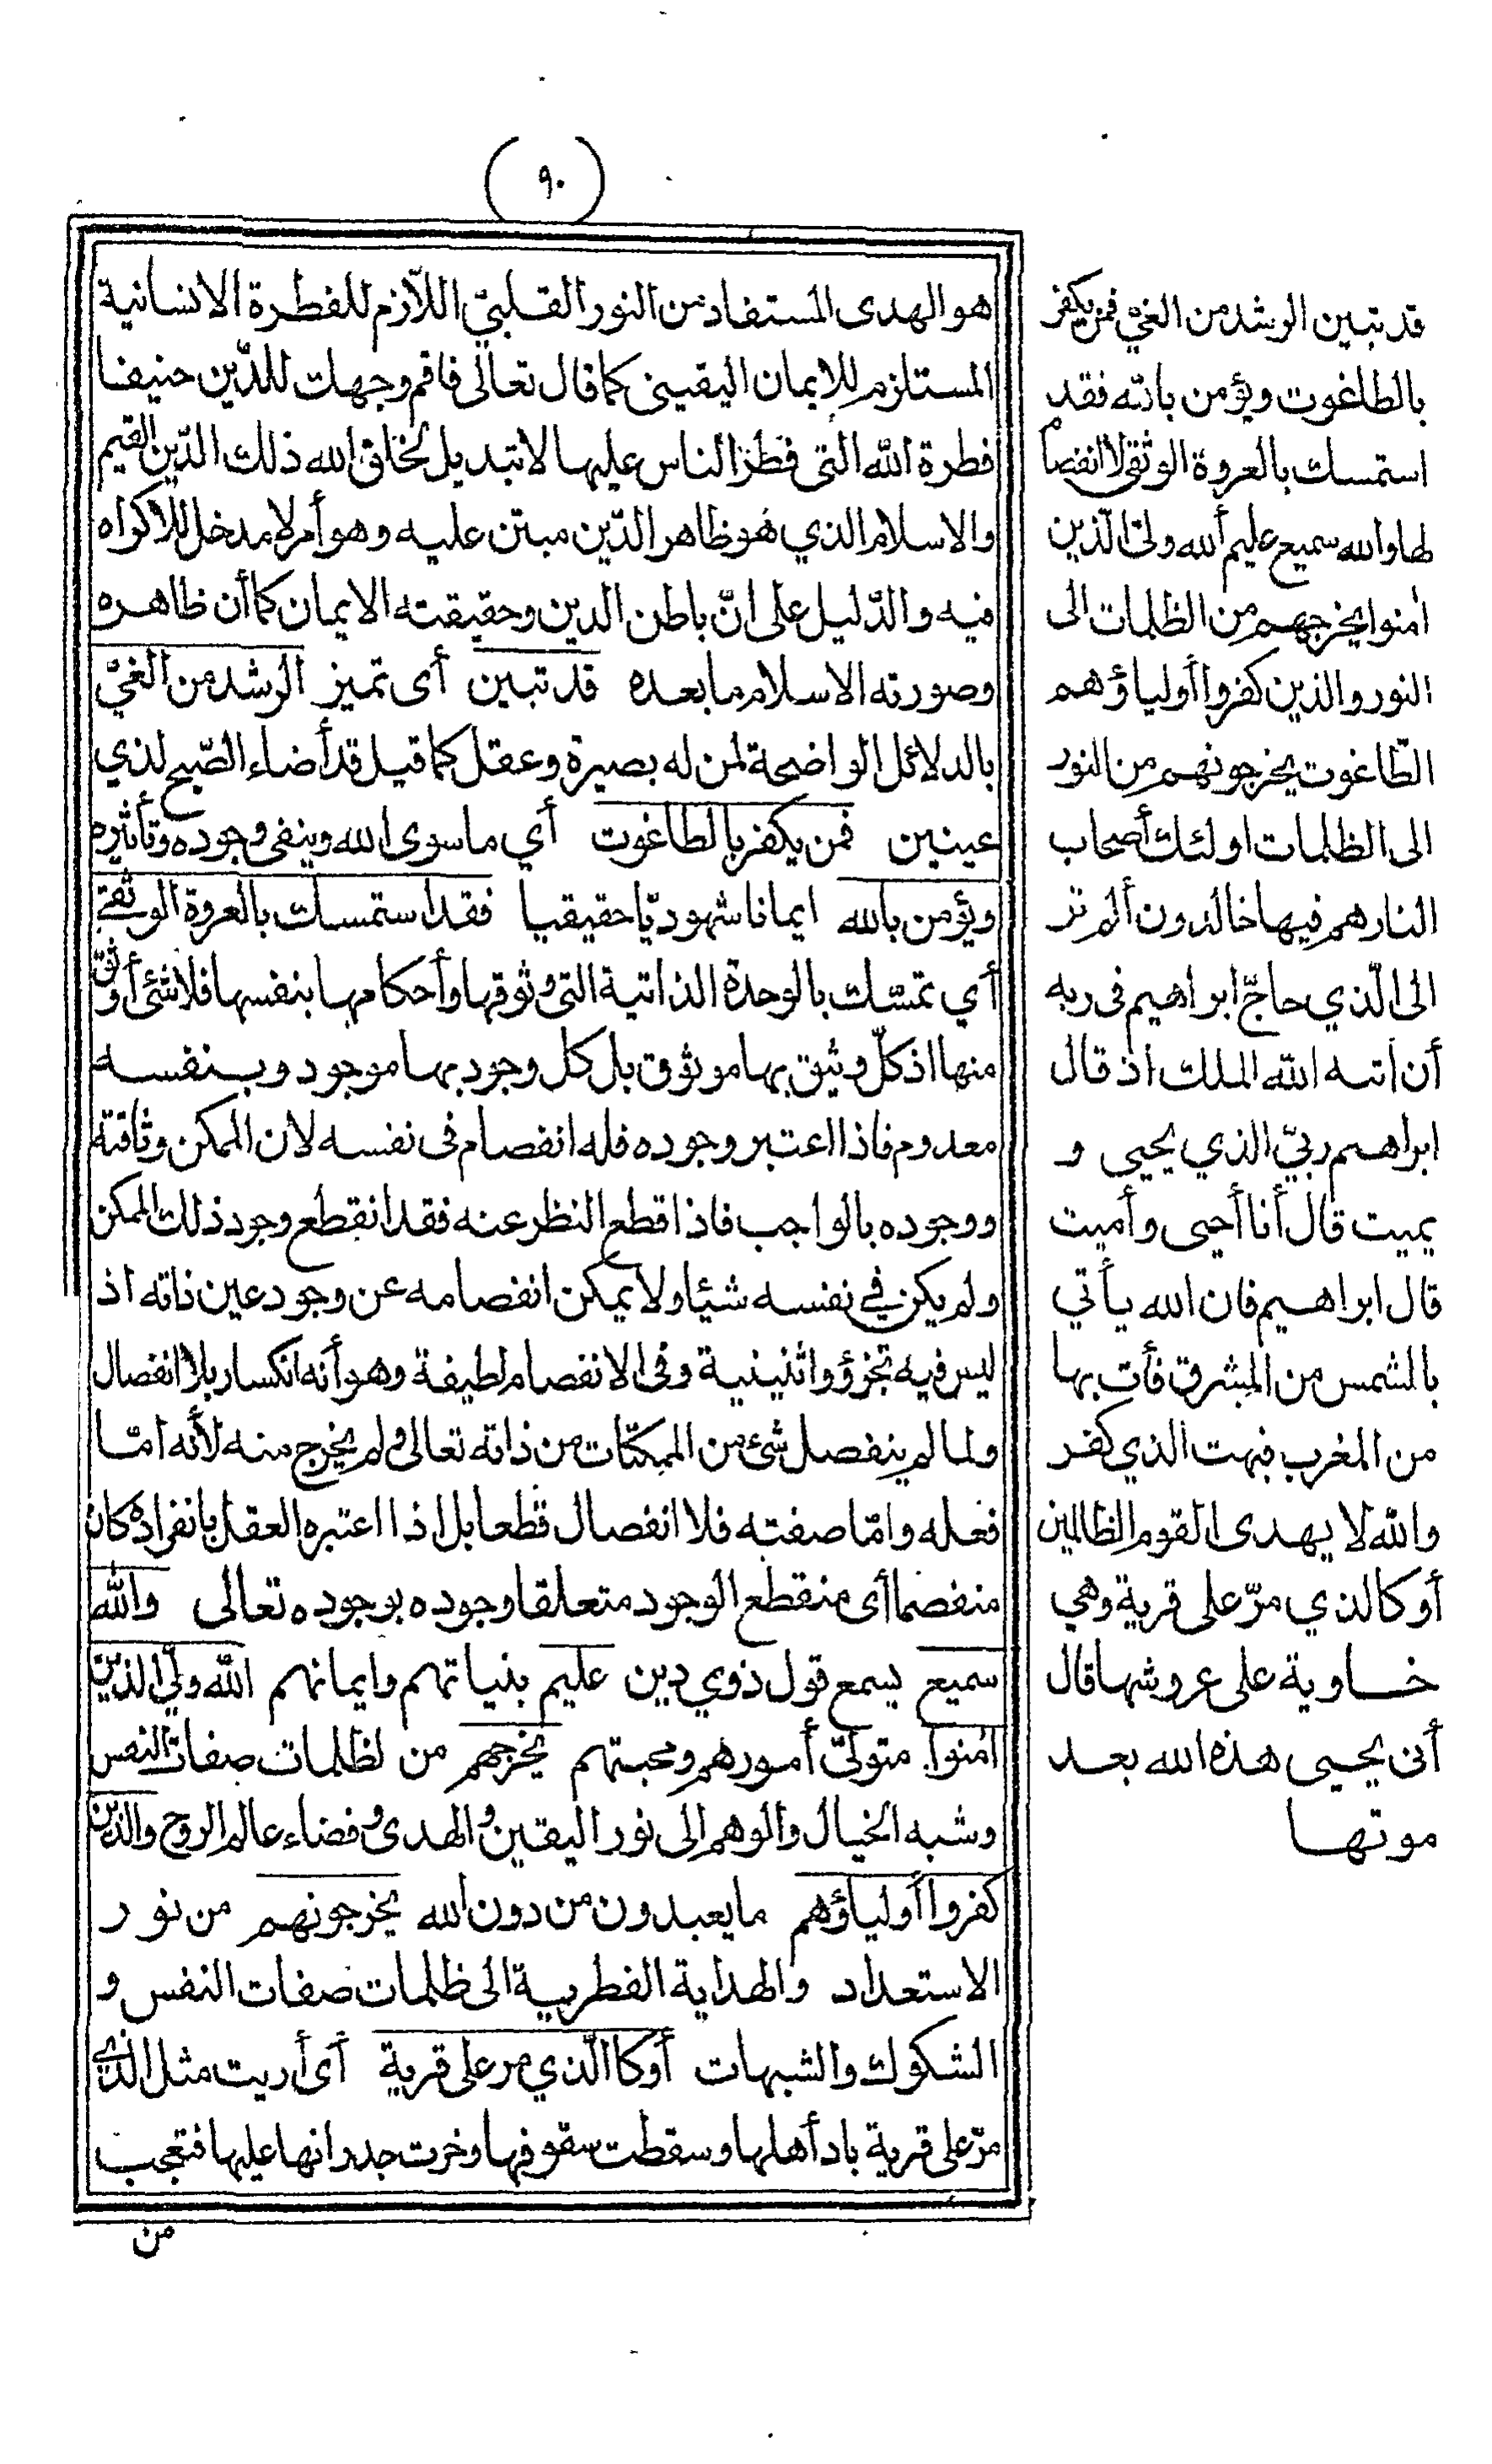 (٩٠)
هو الهدى المستفاد من النور القلبيّ اللاّزم للفطرة الانسانية
المستلزم للايمان اليقينى كما قال تعالى فاقم وجهك للدّين حنيفا
فطرة الله التى فطر الناس عليها لا تبديل لخلق الله ذلك الدّين القيم
والاسلام الذي هو ظاهر الدّين مبتن عليه وهو أمر لا مدخل للاكراه
فيه والدّليل على انّ باطن الدين وحقيقته الايمان كما أن ظاهره
وصورته الاسلام ما بعده قد تبين أى تميز الرشد من الغيّ
بالدلائل الواضحة لمن له بصيرة وعقل كما قيل قد أضاء الصّبح لذي
عينين فمن يكفر بالطاغوت أي ما سوى الله وينفى وجوده وتأثيره
ويؤمن بالله ايمانا شهوديّا حقيقيا فقد استمسك بالعروة الوثقى
أي تمسّك بالوحدة الذاتية التى وثوقها وأحكامها بنفسها فلا شئ أوثق
منها اذ كلّ وثيق بها موثوق بل كل وجود بها موجود وبنفسه
معدوم فاذا اعتبر وجوده فله انفصام فى نفسه لان الممكن وثاقته
ووجوده بالواجب فاذا قطع النظر عنه فقد انقطع وجود ذلك الممكن
ولم يكن في نفسه شيئا ولا يمكن انفصامه عن وجود عين ذاته اذ
ليس فيه تجزؤ واثنينية وفى الانفصام لطيفة وهو أنه انكسار بلا انفصال
ولما لم ينفصل شئ من الممكنات من ذاته تعالى ولم يخرج منه لأنه امّا
فعله وامّا صفته فلا انفصال قطعا بل اذا اعتبره العقل بانفراده كان
منفصما أى منقطع الوجود متعلقا وجوده بوجوده تعالى والله
سميع يسمع قول ذوي دين عليم بنياتهم وايمانهم الله وليّ الذين
اٰمنوا متولىّ أمورهم ومحبتهم يخرجهم من لظلمات صفات النفس
وشبه الخيال والوهم الى نور اليقين والهدى وفضاء عالم الروح والذين
كفروا أولياؤهم ما يعبدون من دون الله يخرجونهم من نور
الاستعداد والهداية الفطرية الى ظلمات صفات النفس و
الشكوك والشبهات أو كالّذي مر على قرية أى أريت مثل الذى
مرّ على قرية باد أهلها وسقطت سقوفها وخرت جدرانها عليها فتعجب
من
قد تبين الرشد من الغيّ فمن يكفر
بالطاغوت ويؤمن بالله فقد
استمسك بالعروة الوثقى لا انفصام
لها والله سميع عليم ألله ولىّ الّذين
اٰمنوا يخرجهم من الظلمات الى
النور والذين كفروا أولياؤهم
الطّاغوت يخرجونهم من النور
الى الظلمات اولئك أصحاب
النار هم فيها خالدون ألم تر
الى الّذي حاجّ ابراهيم فى ربه
أن اٰتىه الله الملك اذ قال
ابراهيم ربيّ الذي يحيى و
يميت قال أنا أحيى وأميت
قال ابراهيم فان الله يأتي
بالشمس من المشرق فأت بها
من المغرب فبهت الذي كفر
والله لا يهدى القوم الظالمين
أو كالذي مرّ على قرية وهي
خاوية على عروشها قال
أنى يحيى هذه الله بعد
موتها